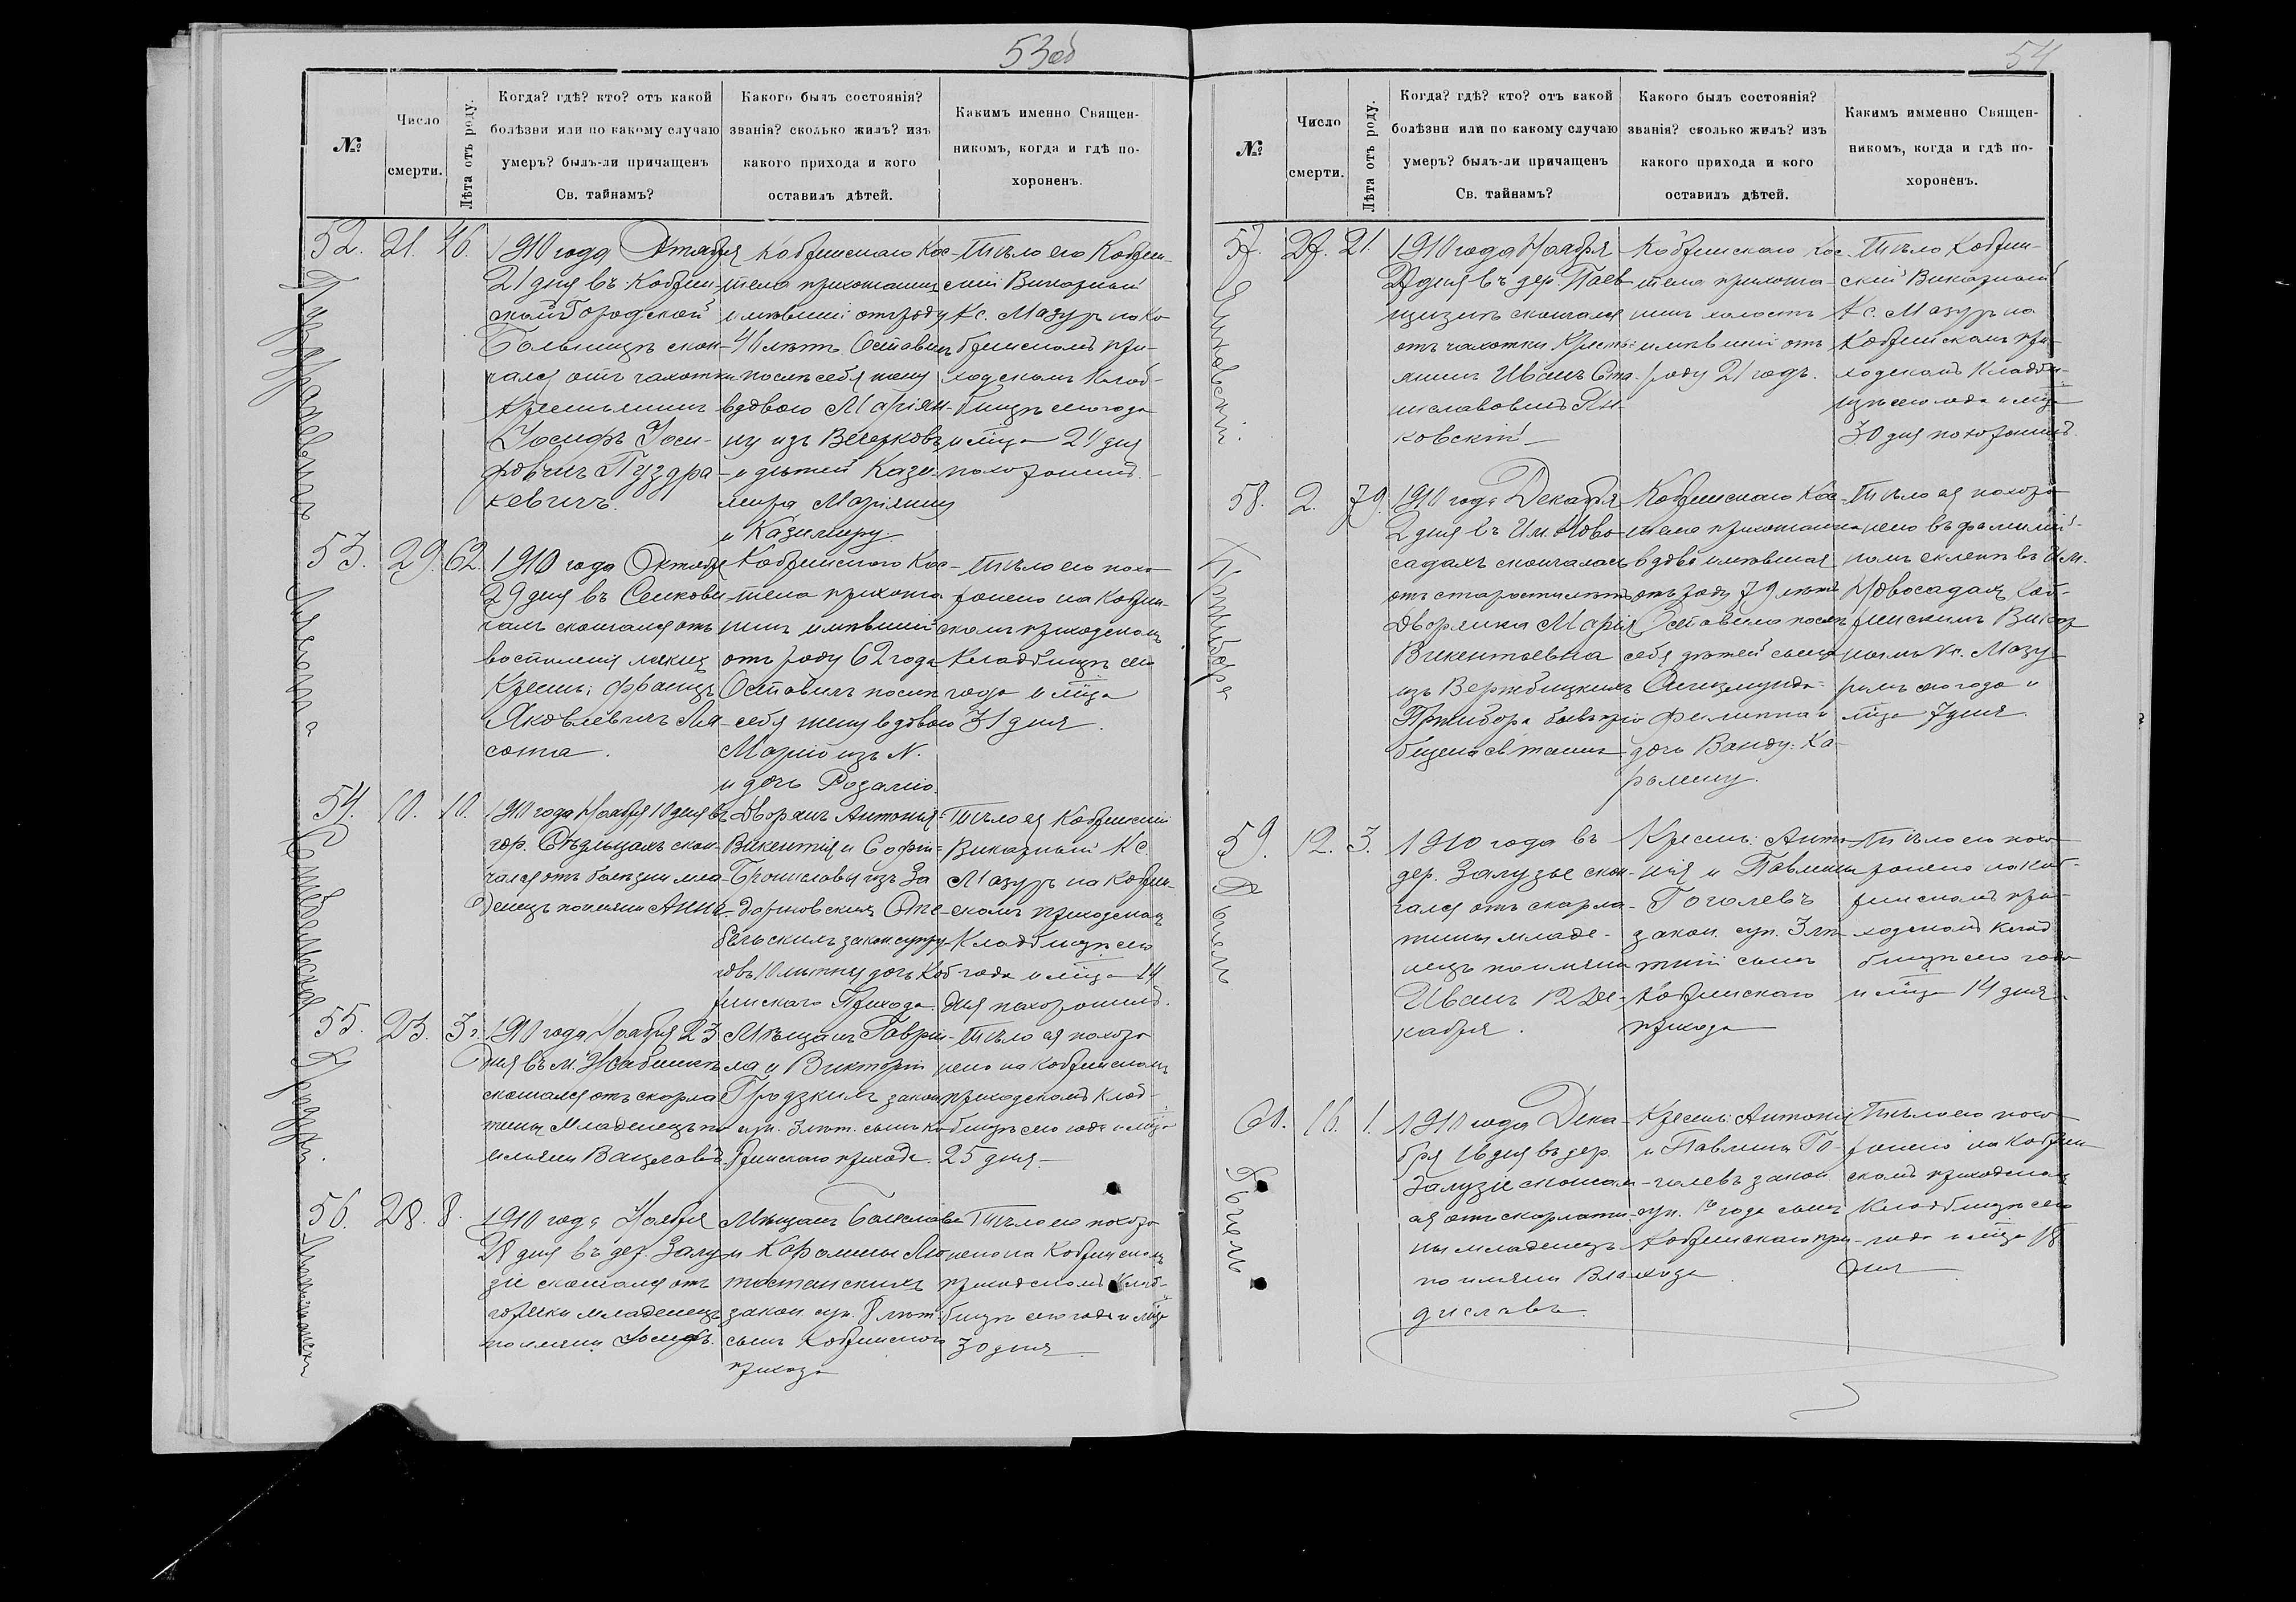 53об
№
Число
смерти.
Лѣта отъ роду.
Когда? гдѣ? кто? отъ какой
болѣзни или по какому случаю
умеръ? былъ-ли причащенъ
Св. тайнамъ?
Какого былъ состоянія?
званія? сколько жилъ? изъ
какого прихода и кого
оставилъ дѣтей.
Какимъ именно Священ-
никомъ, когда и гдѣ по-
хороненъ.
52.
21.
46.
1910 года Октября
21 дня въ Кобрин-
ской Городской
Больницѣ скон-
чался отъ чахотки
Крестьянинъ
Іосифъ Іоси-
фовичъ Пуздра-
кевичъ.
Кобринскаго Кос-
тела прихожанинъ
имѣвшій отъ роду
46 лѣтъ. Оставилъ
послѣ себя жену
вдовою Маріян-
ну изъ
и дѣтей Кази-
мира, Маріянну
и Казимиру.
Тѣло его Кобрин-
скій Викарный
Кс. Мазуръ на Ко-
бринскомъ при-
ходскомъ Клад-
бищѣ сего года
и мѣсяца 24 дня
похоронилъ.
53.
29.
62.
1910 года Октября
29 дня въ Сенкови-
чахъ скончался отъ
воспаленія легкихъ
Крест. Францъ
Яковлевичъ Ля-
сота.
Кобринскаго Кос-
тела прихожа-
нинъ имѣвшій
отъ роду 62 года
Оставилъ послѣ
себя жену вдовою
Марію изъ N.
и дочь Розалію.
Тѣло его похо-
ронено на Кобрин-
скомъ приходскомъ
Кладбищѣ сего
года и мѣсяца
31 дня.
54.
10.
10.
1910 года Ноября 10 дня въ
гор. Сѣдльцахъ скон-
чался отъ болѣзни мла-
денецъ по имени Анна
Дворянъ Антонія
Викентія и Софіи
Брониславы изъ За-
дарновскихъ Опе-
бельскихъ закон. супру-
говъ 10 лѣтняя дочь Коб-
ринскаго Прихода.
Тѣло ея Кобринскій
Викарный Кс.
Мазуръ на Кобрин-
скомъ приходскомъ
Кладбищѣ сего
года и мѣсяца 14
дня похоронилъ.
55.
23.
3.
1910 года Ноября 23
дня въ м. Жабинкѣ
скончался отъ скарла-
тины Младенецъ по
имени Вацлавъ.
Мѣщанъ Гаврі-
ла и Викторіи
Гродзкихъ закон.
суп. 3 лѣт. сынъ Ко-
бринскаго прихода.
Тѣло ея похоро-
нено на Кобринскомъ
приходскомъ Клад-
бищѣ сего года и мѣсяца
25 дня.
56.
28.
8.
1910 года Ноября
28 дня въ дер. Залу-
зіе скончался отъ
горячки младенецъ
по имени Іосифъ.
Мѣщанъ Болеслава
и Каролины
закон. суп. 8 лѣт.
сынъ Кобринскаго
прихода
Тѣло его похоро-
нено на Кобринскомъ
приходскомъ Клад-
бищѣ сего года и мѣсяца
30 дня
54
№
Число
смерти.
Лѣта отъ роду.
Когда? гдѣ? кто? отъ какой
болѣзни или по какому случаю
умеръ? былъ-ли причащенъ
Св. тайнамъ?
Какого былъ состоянія?
званія? сколько жилъ? изъ
какого прихода и кого
оставилъ дѣтей.
Какимъ имменно Священ-
никомъ, когда и гдѣ по-
хороненъ.
57.
27.
21.
Янковскій.
1910 года Ноября
27 дня въ дер.
скончался
отъ чахотки Кресть-
янинъ Иванъ Ста-
ниславовичъ Ян-
ковскій
Кобринскаго Кос-
тела прихожа-
нинъ холостъ
имѣвшій отъ
роду 21 годъ.
Тѣло Кобрин-
скій Викарный
Кс. Мазуръ на
Кобринскомъ при-
ходскомъ Кладби-
щѣ сего года и мѣсяца
30 дня похоронилъ.
58.
2.
79.
Пржибора
1910 года Декабря
2 дня въ Им. Ново-
садахъ скончалась
отъ старости лѣтъ
Дворянка Марія
Викентьевна
изъ Вержбицкихъ
Пржибора бывъ прі-
общена св. таинъ
Кобринскаго Кос-
тела прихожанка
вдова имѣвшая
отъ роду 79 лѣтъ
Оставила послѣ
себя дѣтей сына
Сигизмунда-
Феликса и
дочь Ванду-Ка-
ролину.
Тѣло ея похоро-
нено въ фамиль-
номъ склепѣ въ Им.
Новосадахъ Коб-
ринскимъ Викар-
нымъ Кс. Мазу-
ромъ сего года и
мѣсяца 7 дня.
59.
12.
3.
1910 года въ
дер. Залузье скон-
чался отъ скарла-
тины младе-
нецъ по имени
Иванъ 12 Де-
кабря.
Крест. Анто-
нія и Павлины
Гоголевъ
закон. суп. 3 лѣ-
тній сынъ
Кобринскаго
прихода
Тѣло его похо-
ронено на Коб-
ринскомъ при-
ходскомъ Клад-
бищѣ сего года
и мѣсяца 14 дня.
60.
16.
1.
1910 года Дека-
бря 16 дня въ дер.
Залузіе скончал-
ся отъ скарлати-
ны младенецъ
по имени Вла-
диславъ.
Крест. Антонія
и Павлины Го-
голевъ закон.
суп. 1 года сынъ
Кобринскаго при-
хода
Тѣло его похо-
ронено на Кобрин-
скомъ приходскомъ
Кладбищѣ сего
года и мѣсяца 18
дня